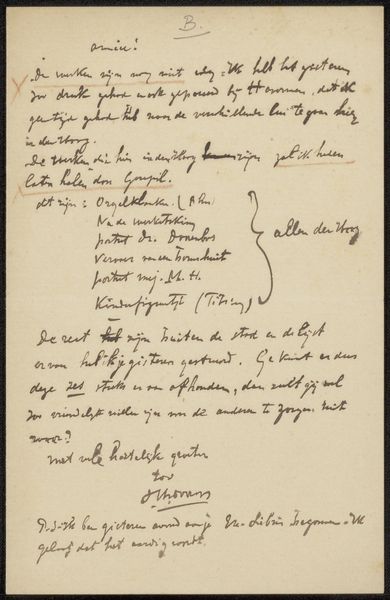 B.
amice!
De werken zijn nog niet weg. Ik heb het gisteren
zoo druk gehad ook geposeerd bij Haverman, dat ik
geen tijd gehad heb naar de verschillende lui te gaan hier
in den Haag.
De werken die hier in den Haag zijn zal ik heden
laten halen door Goupil.
dit zijn: Orgelklanken (
Na de
portret Dr.
Vervoer van een boomstam
portret mej. M. H.
Kinderfiguurtje (
allen den Haag
De rest zijn buiten de stad en de lijst
ervan heb ik je gisteren gestuurd. Ge kunt er dus
deze zes stuks er van afhouden, dan zult gij wel
zoo vriendelijk willen zijn voor de anderen te zorgen. niet
waar?
met vele hartelijke groeten
P.S. Ik ben gisteren avond aan je Ex-libris begonnen. Ik
geloof dat het aardig wordt.